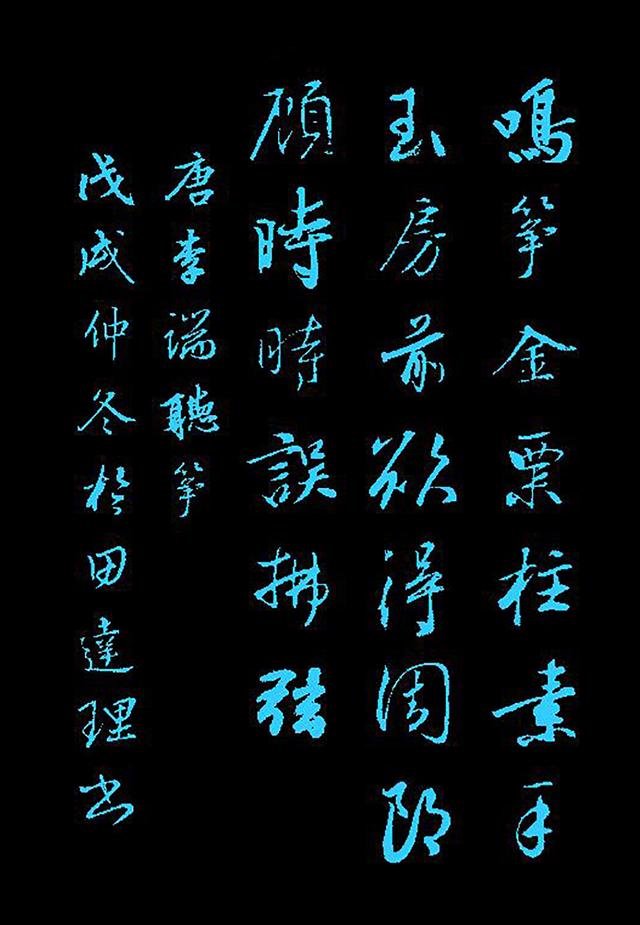 鳴箏金粟柱素手
玉房前欲得周郎
顧時時誤拂弦
唐李端聽箏
戊戌仲冬於田達理书